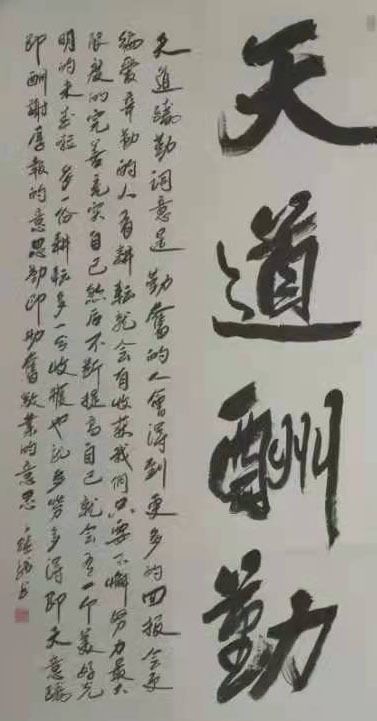 天道酬勤
天道酬勤词意是勤奮的人會得到更多的回报会更
偏爱辛勤的人有耕耘就会有收获我们只要不懈努力最大
限度的完善充实自己然后不断提高自己就会有一个美好光
明的未来 多一份耕耘多一分收獲也 多劳多得即天意酬
即酬谢厚報的意思勤即勤奮敬業的意思